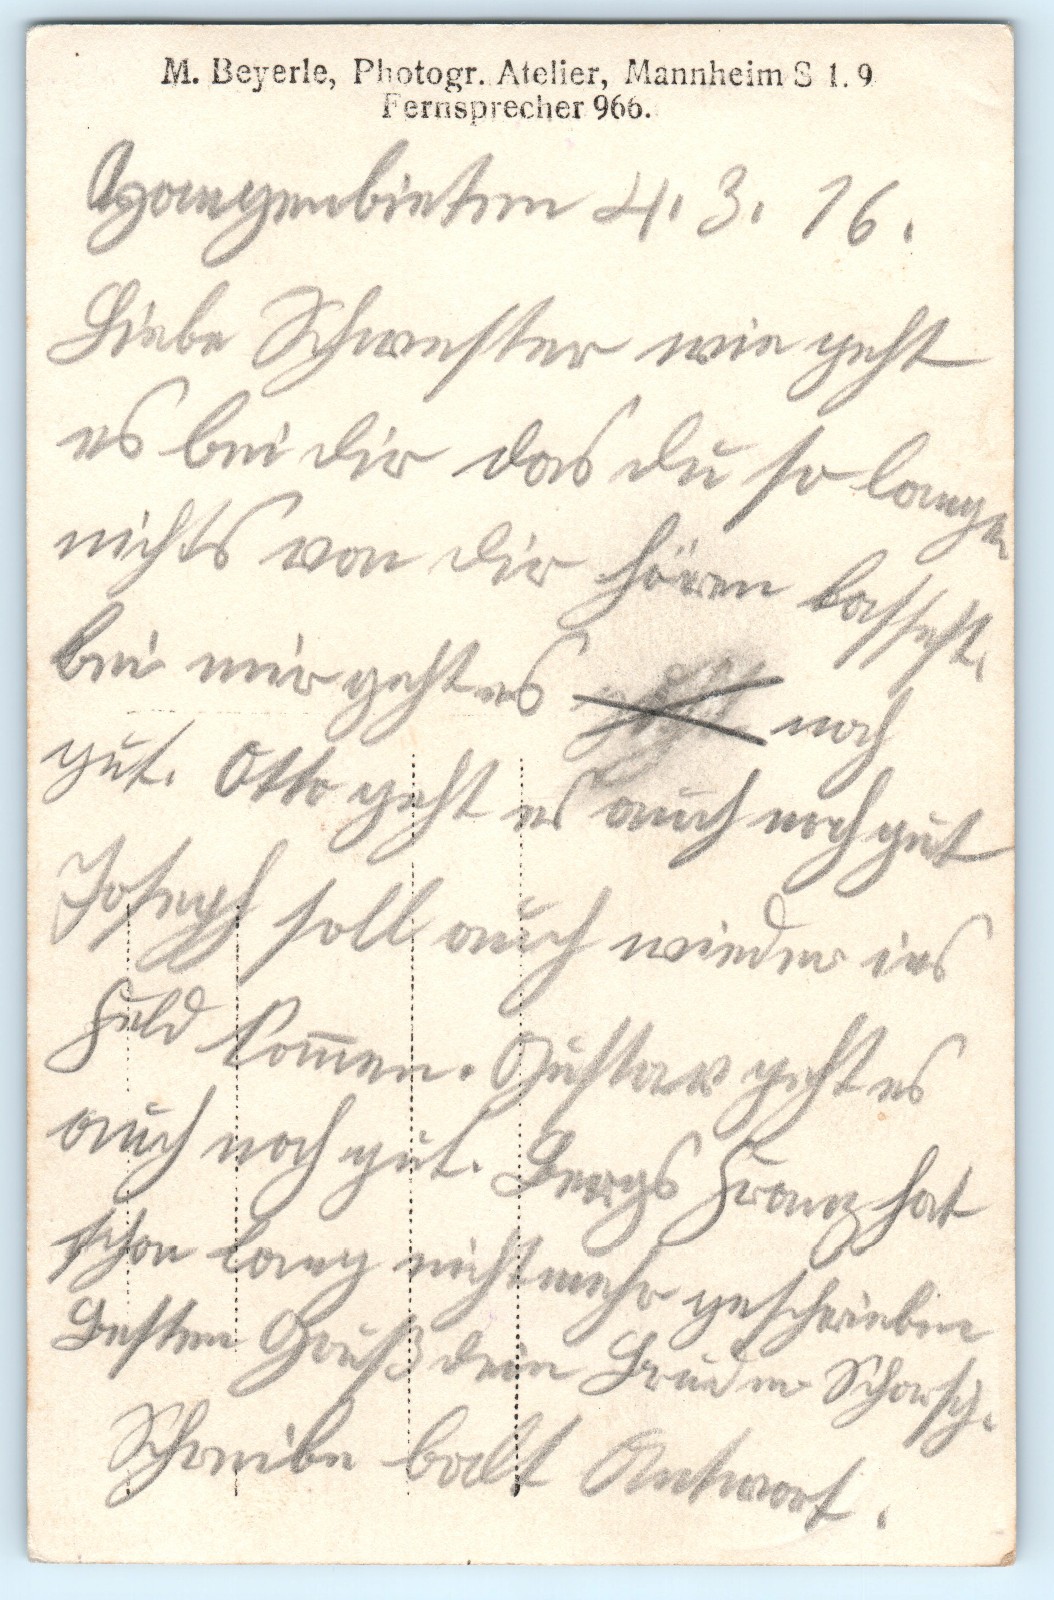 M. Beyerle, Photogr. Atelier, Mannheim S 1. 9
Fernsprecher 966.
Gzangenbieten 4. 3. 16.
Liebe Schwester wie geht
es bei dir das du so lange
nichts von dir hören lasseht.
bei mir geht es noch
gut. Otto geht es auch noch gut
Joseph soll auch wieder ins
Feld kom̅en. Gustav geht es
auch noch gut. Bergs Franz hat
schon lang nicht mehr geschrieben
Besten Gruß dein Bruder Schorsch.
Schreibe balt Antwort.